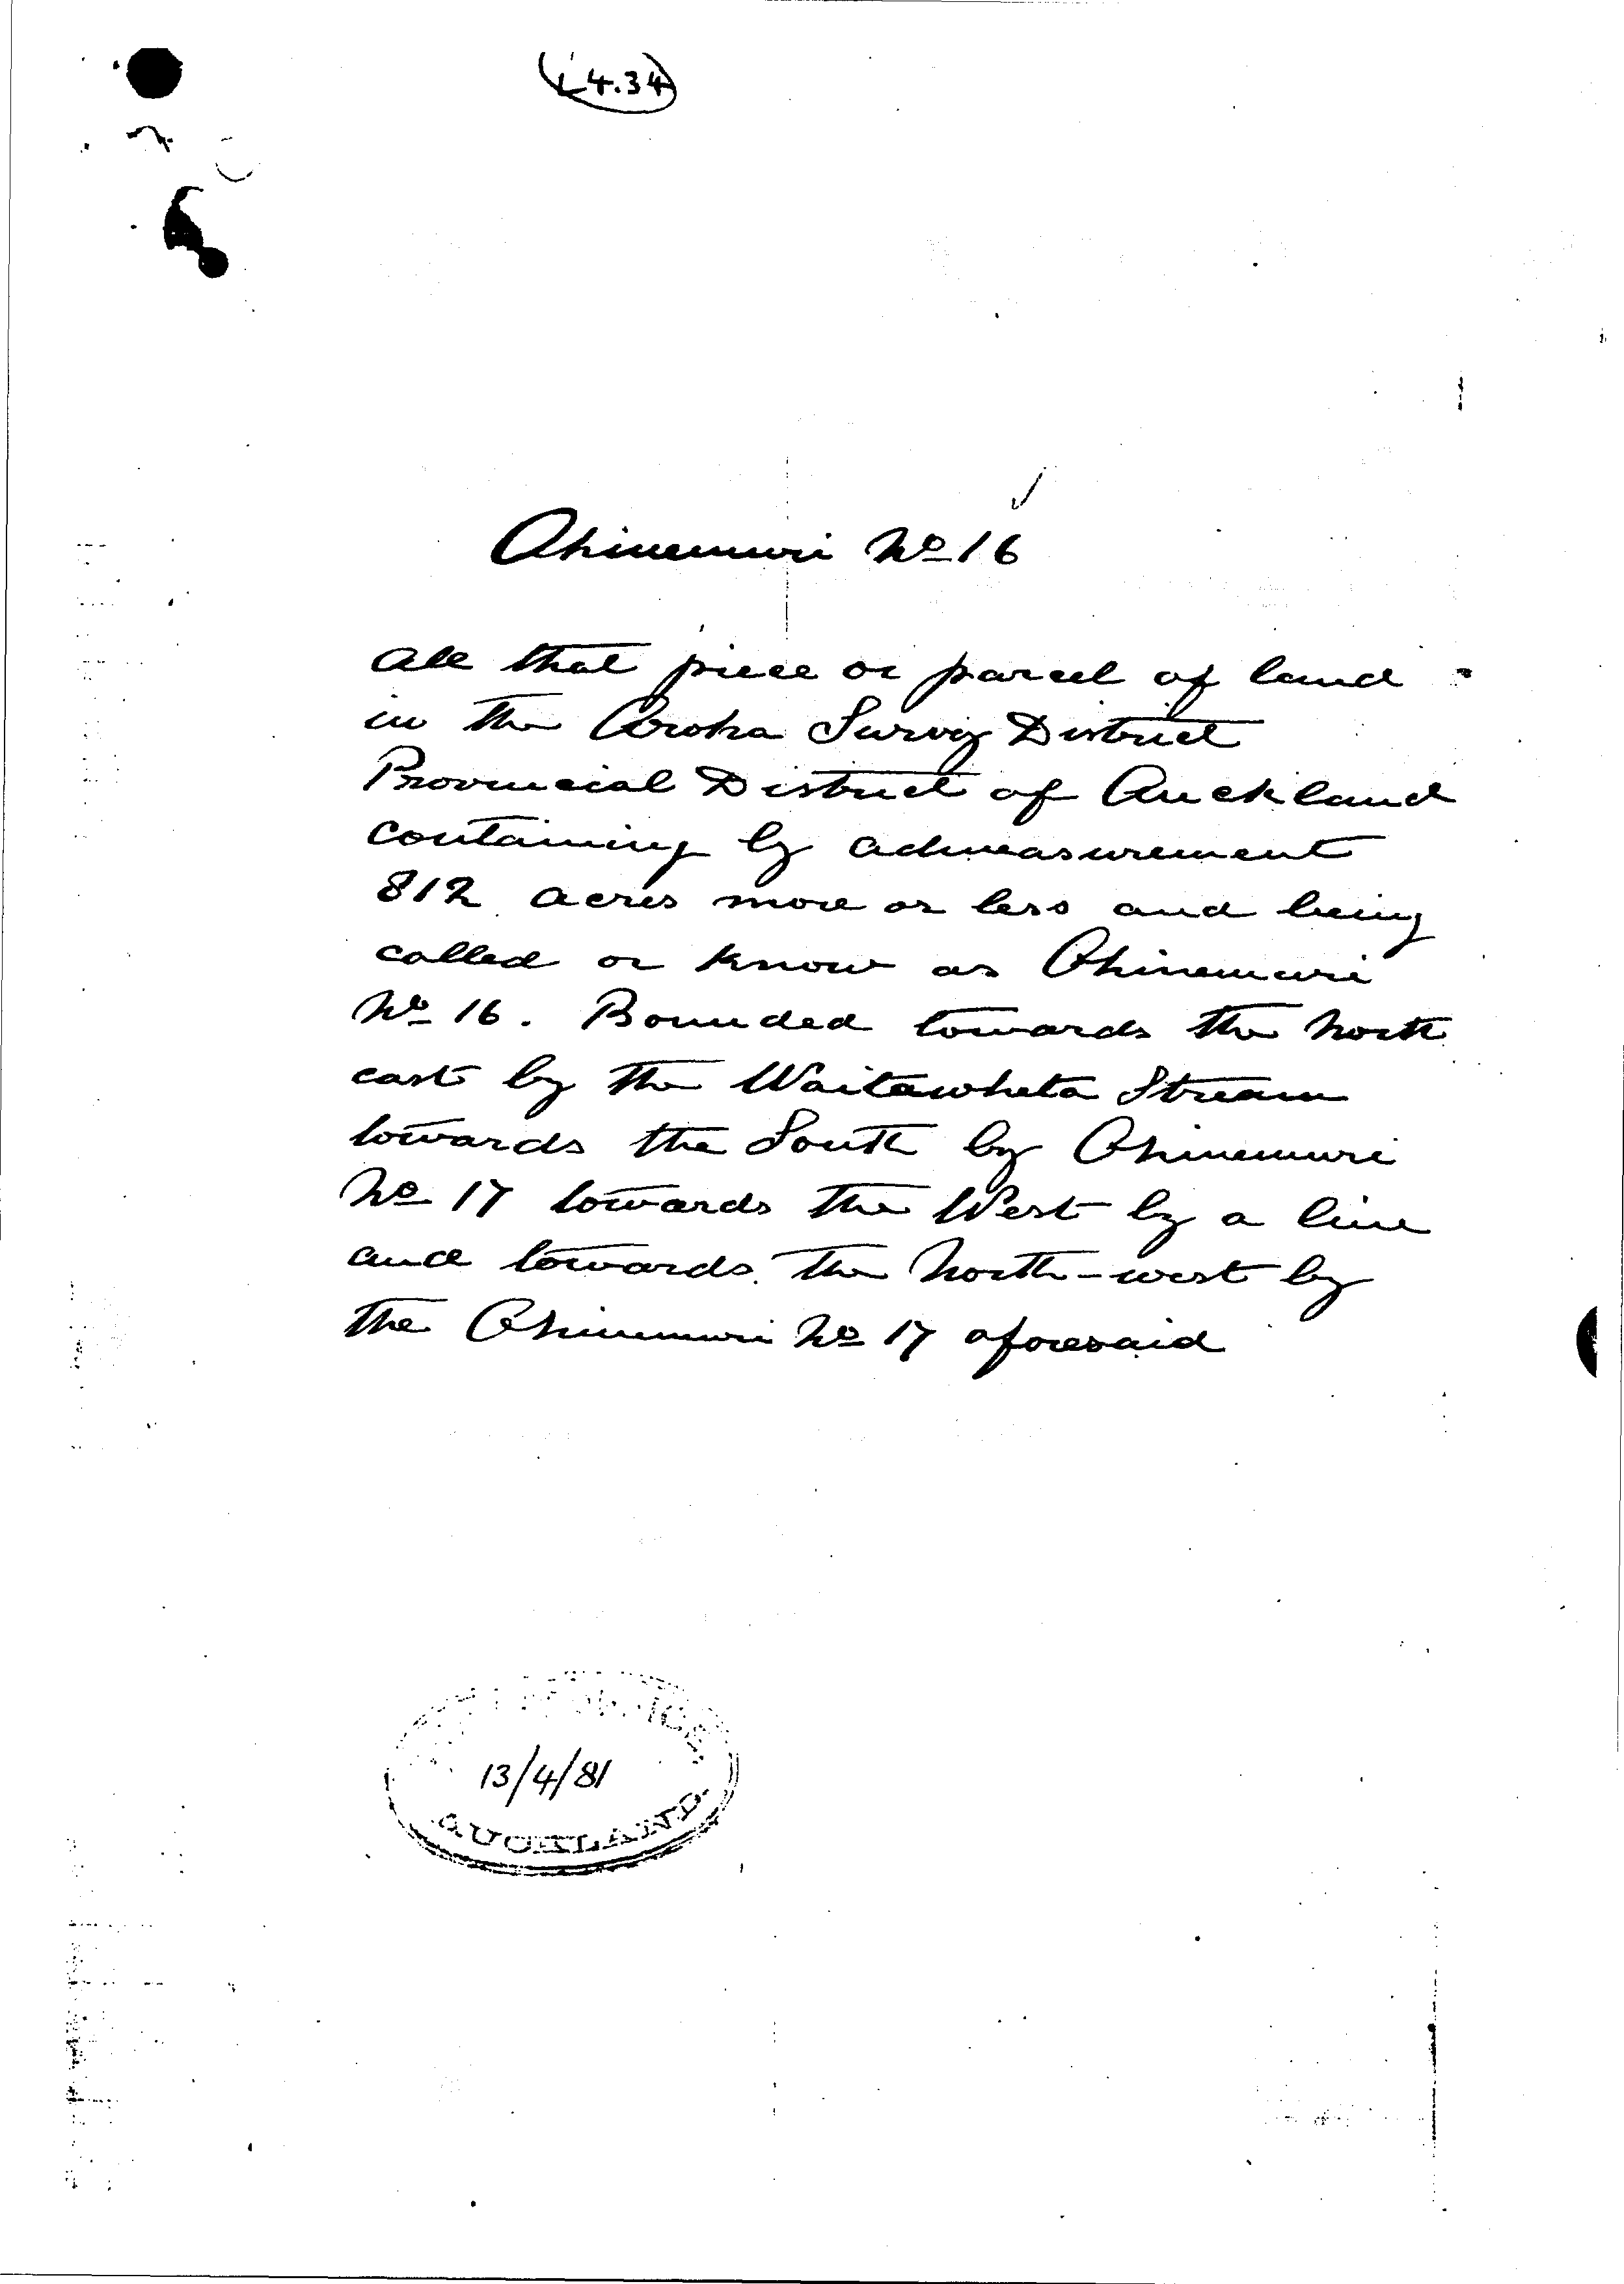 (L4.34)
Ohinemuri No 16
All that piece or parcel of land
in the Aroha Survey District
Provincial District of Auckland
containing by admeasurement
812 acres more or less and being
called or know as Ohinemuri
No 16. Bounded towards the North
east by the Waitawheta Stream
towards the South by Ohinemuri
No 17 towards the West by a line
and towards the North-west by
the Ohinemuri No 17 aforesaid
13/4/81
AUCKLAND